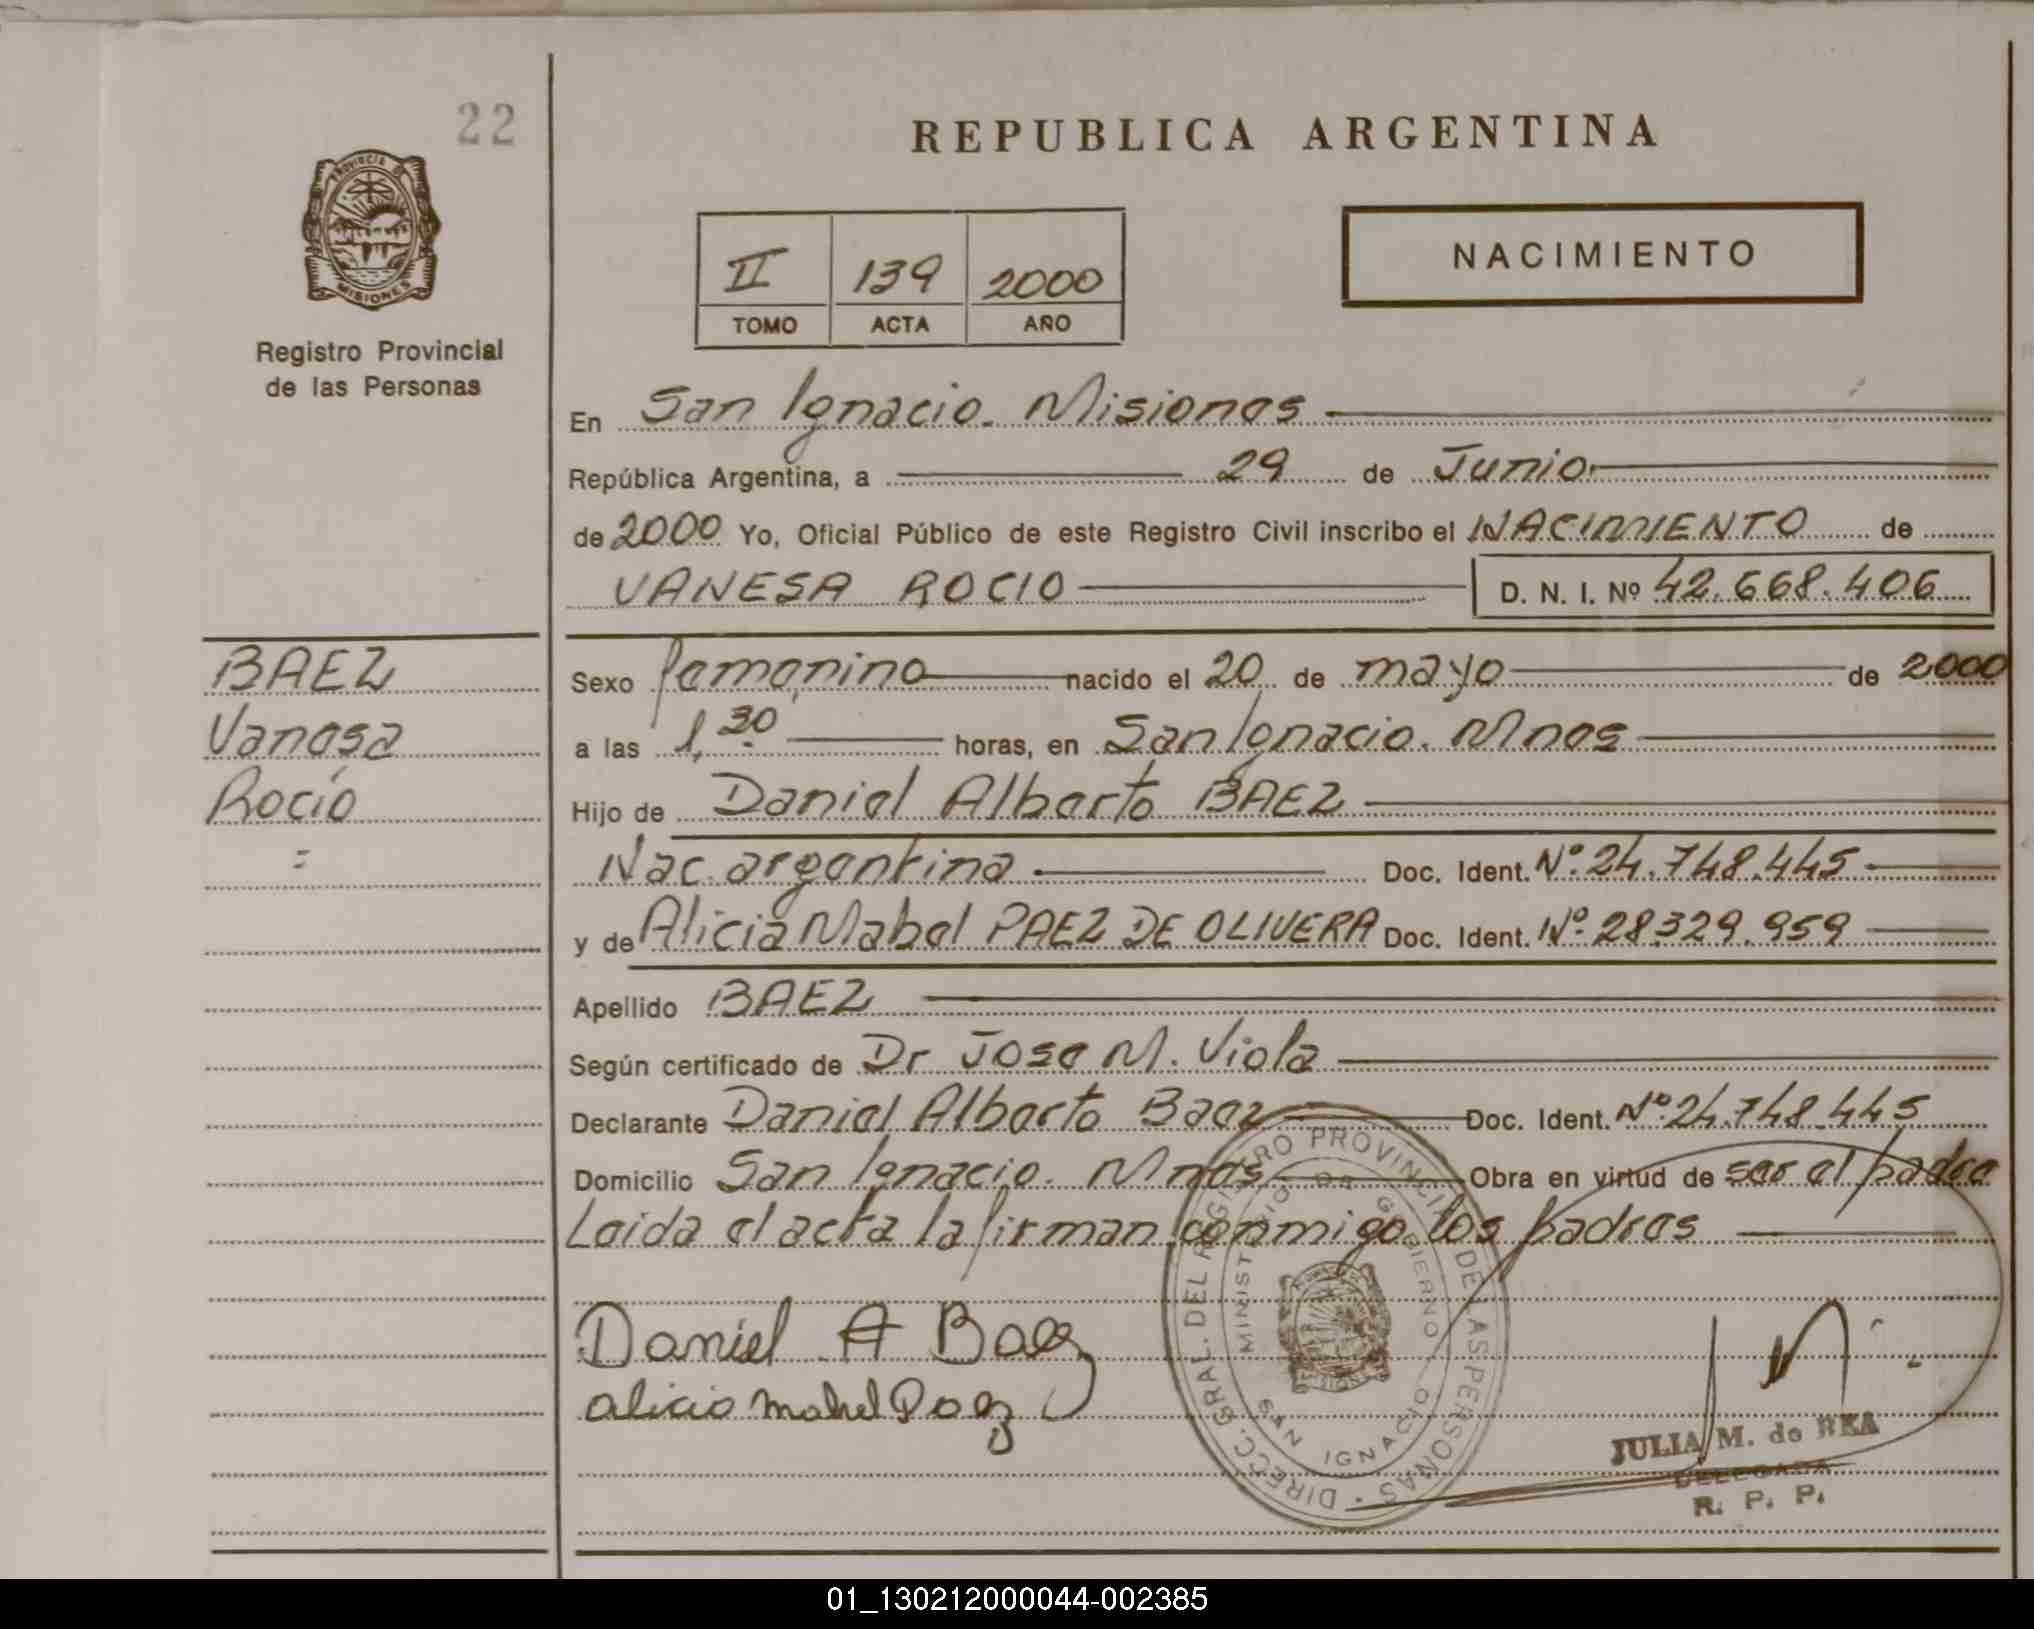 22
PROVINCIA DE
MISIONES
Registro Provincial
de las Personas
REPUBLICA ARGENTINA
II 139 2000
TOMO ACTA AÑO
NACIMIENTO
En San Ignacio. Misiones
República Argentina, a 29 de Junio
de 2000 Yo, Oficial Público de este Registro Civil inscribo el NACIMIENTO de
VANESA ROCIO D. N. I. Nº 42.668.406
BAEZ
Vanesa
Rocío
=
Sexo femenino nacido el 20 de mayo de 2000
a las 1,30 horas, en San Ignacio. Mnes
Hijo de Daniel Alberto BAEZ
Nac. argentina Doc. Ident. Nº 24.748.445
y de Alicia Mabel PAEZ DE OLIVERA Doc. Ident. Nº 28.329.959
Apellido BAEZ
Según certificado de Dr Jose M. Viola
Declarante Daniel Alberto Baez Doc. Ident. Nº 24.748.445
Domicilio San Ignacio. Mnes Obra en virtud de ser el padre
Leida el acta la firman conmigo los padres
Daniel A Baez
alicia mabel Paez
DIRECC. GRAL. DEL REGISTRO PROVINCIAL DE LAS PERSONAS
MINISTERIO DE GOBIERNO
SAN IGNACIO
JULIA M. de REA
DELEGADA
R. P. P.
01_130212000044-002385